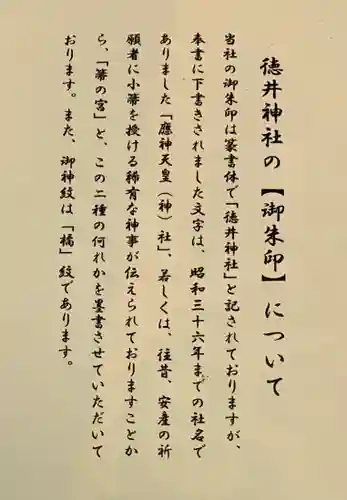 徳井神社の【御朱印】について
当社の御朱印は篆書体で「徳井神社」と記されておりますが、
本書に下書きされました文字は、昭和三十六年までの社名で
ありました「應神天皇（神）社」、若しくは、往昔、安産の祈
願者に小箒を授ける稀有な神事が伝えられておりますことか
ら、「箒の宮」と、この二種の何れかを墨書させていただいて
おります。また、御神紋は「橘」紋であります。